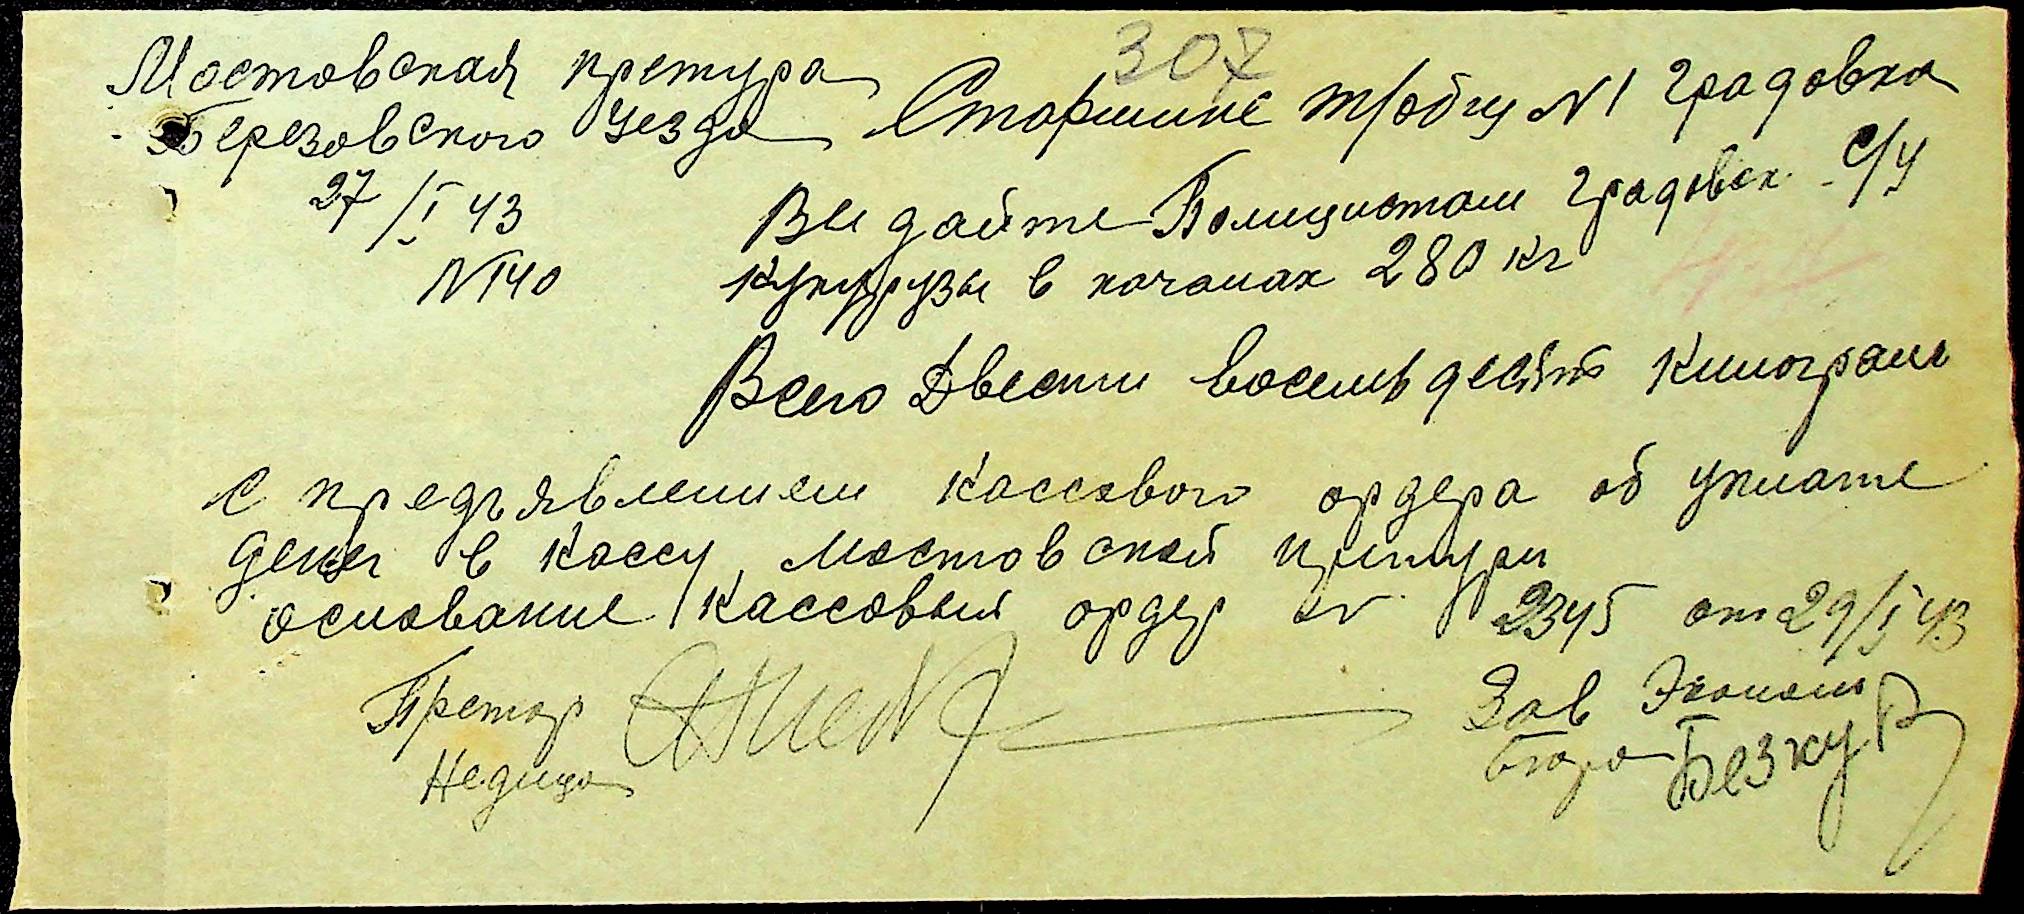 307
Мостовская претура
Березовского Уезда
27/I 43
N 140
Старшине т/общ N 1 Градовка
Выдайте Полицистам Градовск. с/у
кукурузы в кочанах 280 кг
Всего Двести восемьдесят килограмь
с предъявлением кассового ордера об уплате
денег в кассу Мостовской претуры
основание кассовый ордер N 2345 от 29/I 43
Претор
Недица
Зав Эконом
бюро Безкур